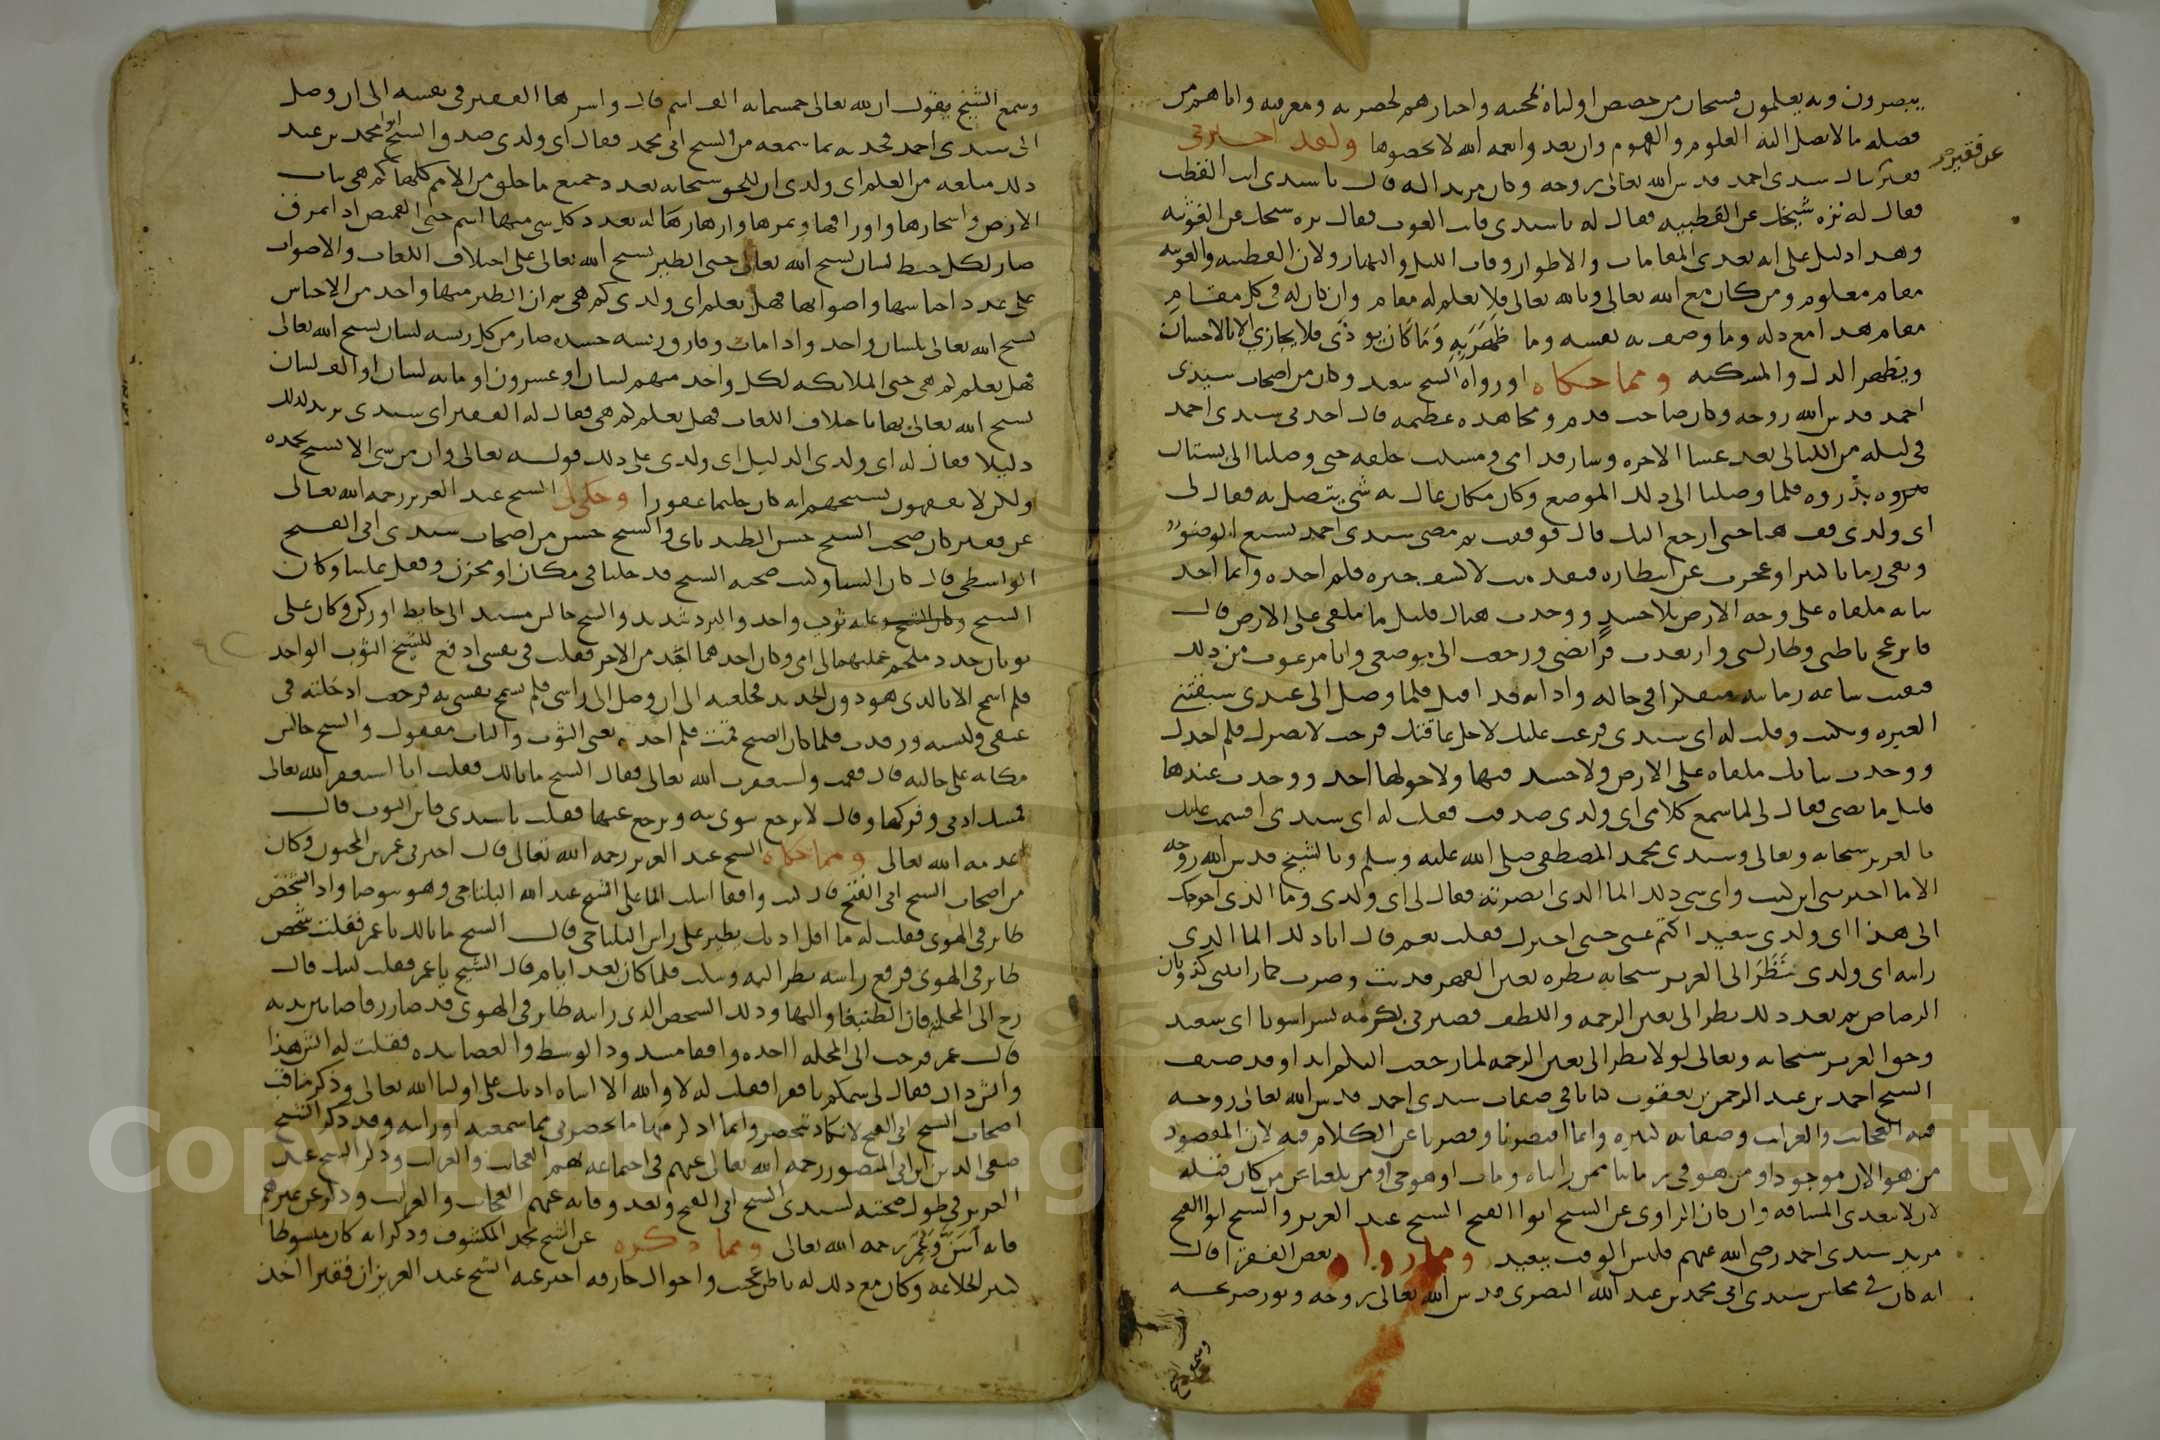 يبصرون وبه يعلمون فسبحان من خصص اولياه لمحبته واختارهم لحضرته ومعرفته واتاهم من
فضله ما لا تصل اليه العلوم والفهوم وان تعدوا نعمه الله لا تحصوها ولقد اخبرنى
عن فقير
فقير سيدى احمد قدس الله تعالى روحه وكان مريد اله قال يا سيدى انت القطب
فقال له نزه شيخك عن القطبيه فقال له يا سيدى فانت الغوث فقال نزه شيخك عن الغوثيه
وهدا دليل على انه تعدى المقامات والاطوار وفات الليل والنهار ولان القطبيه والغوثيه
مقام معلوم ومن كان مع الله تعالى وبالله تعالى فلا يعلم له مقام وان كان له فى كل مقام
مقام هدا مع دله وما وصف به نفسه وما ظهر به وما كان يوذى فلا يجازى الا بالاحسان
ويظهر الدل والمسكنه ومما حكاه اورواه الشيخ سعيد وكان من اصحاب سيدى
احمد قدس الله روحه وكان صاحب قدم ومجاهده عظيمه قال اخدنى سيدى احمد
فى ليله من الليالى بعد عشا الاخره وسار قدامى ومشيت خلفه حتى وصلنا الى بستان
فلما وصلنا الى دلك الموضع وكان مكان عال به شى يتصل به فقال لى
اى ولدى قف هنا حتى ارجع اليك قال فوقفت ثم مضى سيدى احمد يسبغ الوضو
وبقى زمانا كثيرا وعجزت عن انتظاره فتقدمت لاكشف خبره فلم اجده وانما اجد
ثيابه ملقاه على وجه الارض بلا جسد ووجدت هناك قليل ما ملقى على الارض قال
فانزعج باطنى وطار لبى وارتعدت فرايصى ورجعت الى موضعى وانا مرعوب من دلك
فبقيت ساعه زمانيه متفكرا فى حاله وادا به قد اقبل فلما وصل الى عندى سبقتنى
العبره وبكيت وقلت له اى سيدى فزعت عليك لاجل عاقتك فرحت لابصرك فلم اجدك
ووجدت ثيابك ملقاه على الارض ولا جسد فيها ولا حولها احد ووجدت عندها
قليل ما نصى فقال لى لما سمع كلامى اى ولدى صدقت فقلت له اى سيدى اقسمت عليك
بالعزيز سبحانه وتعالى وسيدى محمد المصطفى صلى الله عليه وسلم وبالشيخ قدس الله روحه
الا ما اخبرتنى اين كنت واى شى دلك الما الدى ابصرته فقال لى اى ولدى وما الدى احوجك
الى هذا اى ولدى سعيد اكتم عنى حتى اخبرك فقلت نعم قال اما دلك الما الدى
رايته اى ولدى نظر الى العزيز سبحانه نظره بعين القهر فدبت وصرت كما رايتنى كذوبان
الرصاص ثم بعد دلك نظر الى بعين الرحمه واللطف فصيرنى بكرمه بشرا سويا اى سعيد
وحق العزيز سبحانه وتعالى لولا نظر الى بعين الرحمه لما رجعت اليكم ابدا وقد صنف
الشيخ احمد بن عبد الرحمن بن يعقوب كتابا فى صفات سيدى احمد قدس الله تعالى روحه
فيه العجايب والغرايب وصفاته كثيره وانما اقتصرنا وقصرنا عن الكلام فيه لان المقصود
من هو الان موجود او من هو فى زماننا ممن رايناه ومات او هو حى او من بلغنا عن من كان قبله
لان لا تتعدى المسافه وان كان الراوى عن الشيخ ابوا الفتح الشيخ عبد العزيز والشيخ ابوا الفتح
مريد سيدى احمد رضى الله عنهم فليس الوقت ببعيد ومما رواه بعض الفقرا قال
انه كان فى مجلس سيدى ابى محمد بن عبد الله البصرى قدس الله تعالى روحه ونور ضريحه
وسمع الشيخ
وسمع الشيخ يقول ان لله تعالى خمسمايه الف اسم قال واسرها الفقير فى نفسه الى ان وصل
الى سيدى احمد فحدثه بما سمعه من الشيخ ابى محمد فقال اى ولدى صدق الشيخ ابو محمد بن عبد
دلك مبلغه من العلم اى ولدى ان للحق سبحانه بعدد جميع ما خلق من الامم كلها كم هى نبات
الارض واشجارها واوراقها وثمرها وازهارها له بعدد كل شى منها اسم حتى القميص ادا تمزق
صار لكل خيط لسان يسبح الله تعالى حتى الطير تسبح الله تعالى على اختلاف اللغات والاصوات
على عدد اجناسها واصواتها فهل تعلم اى ولدى كم هى ثم ان الطير منها واحد من الاجناس
يسبح الله تعالى بلسان واحد وادا مات وفارق ريشه جسده صار من كل ريشه لسان يسبح الله تعالى
فهل تعلم كم هى حتى الملايكه لكل واحد منهم لسان او عشرون او مايه لسان او الف لسان
يسبح الله تعالى بها باختلاف اللغات فهل تعلم كم هى فقال له الفقير اى سيدى نريد لدلك
دليلا فقال له اى ولدى الدليل اى ولدى على دلك قوله تعالى وان من شى الا يسبح بحمده
ولكن لا تفقهون تسبيحهم انه كان حليما غفورا وحكى لى الشيخ عبد العزيز رحمه الله تعالى
عن فقير كان صحب الشيخ حسن الطبدباى والشيخ حسن من اصحاب سيدى ابى الفتح
الواسطى قال كان الشتا وكنت صحبه الشيخ قد دخلنا فى مكان او مخزن وقفل علينا وكان
الشيخ عليه ثوب واحد والبرد شديد والشيخ جالس مستند الى حايط او ركن وكان على
ثوبان جدد ملحم عملتهما لى امى وكان احدهما اجد من الاخر فقلت فى نفسى ادفع للشيخ الثوب الواحد
فلم اسمح الا بالدى هو دون الجديد فخلعته الى ان وصل الى راسى فلم تسمح نفسى به فرجعت ادخلته فى
عنقى ولبسته ورقدت فلما كان الصبح قمت فلم اجده يعنى الثوب والباب مقفول والشيخ جالس
مكانه على حالته قال فقمت واستغفرت الله تعالى فقال الشيخ ما بالك فقلت انا استغفر الله تعالى
فمسك ادنى وفركها وقال لا ترجع تنوى نيه وترجع عنها فقلت يا سيدى فاين الثوب قال
عدمه الله تعالى ومما حكاه الشيخ عبد العزيز رحمه الله تعالى قال اخبرنى عمر بن المجنون وكان
من اصحاب الشيخ ابى الفتح قال كنت واقفا اسكب الما على الشيخ عبد الله البلتاجى وهو يتوضا وادا بشخص
طاير فى الهوى فقلت له ما اقل ادبك يطير على راس البلتاجى قال الشيخ ما بالك يا عمر فقلت شخص
طاير فى الهوى فرفع راسه نظر اليه وسكت فلما كان بعد ايام قال الشيخ يا عمر فقلت لبيك قال
رح الى المحله فان الطنبغا واليها ودلك الشخص الدى رايته طاير فى الهوى قد صار رقاصا بين يديه
قال عمر فرحت الى المحله اجده واقفا مشدود الوسط والعصا بيده فقلت له ايش هذا
وايش داك فقال لى سمكم يا فقرا فقلت له لا والله الا اساه ادبك على اوليا الله تعالى وذكر مناقب
اصحاب الشيخ ابى الفتح لا تكاد تنحصر وانما ادكر منها ما يحضرنى مما سمعته او رايته وقد دكر الشيخ
صفى الدين ابن ابى المنصور رحمه الله تعالى عنهم فى اجتماعه بهم العجايب والغرايب ودكر الشيخ عبد
العزيز فى طول صحبته لسيدى الشيخ ابى الفتح وبعد وفاته عنهم العجايب والغرايب ودكر عن غيرهم
فانه اسن وعمر رحمه الله تعالى ومما دكره عن الشيخ محمد المكشوف ودكر انه كان مبسوطا
كثير الخلاعه وكان مع دلك له باطن عجيب واحوال خارقه اخبر عنه الشيخ عبد العزيز ان فقيرا اخذ
Copyright © King Saud University